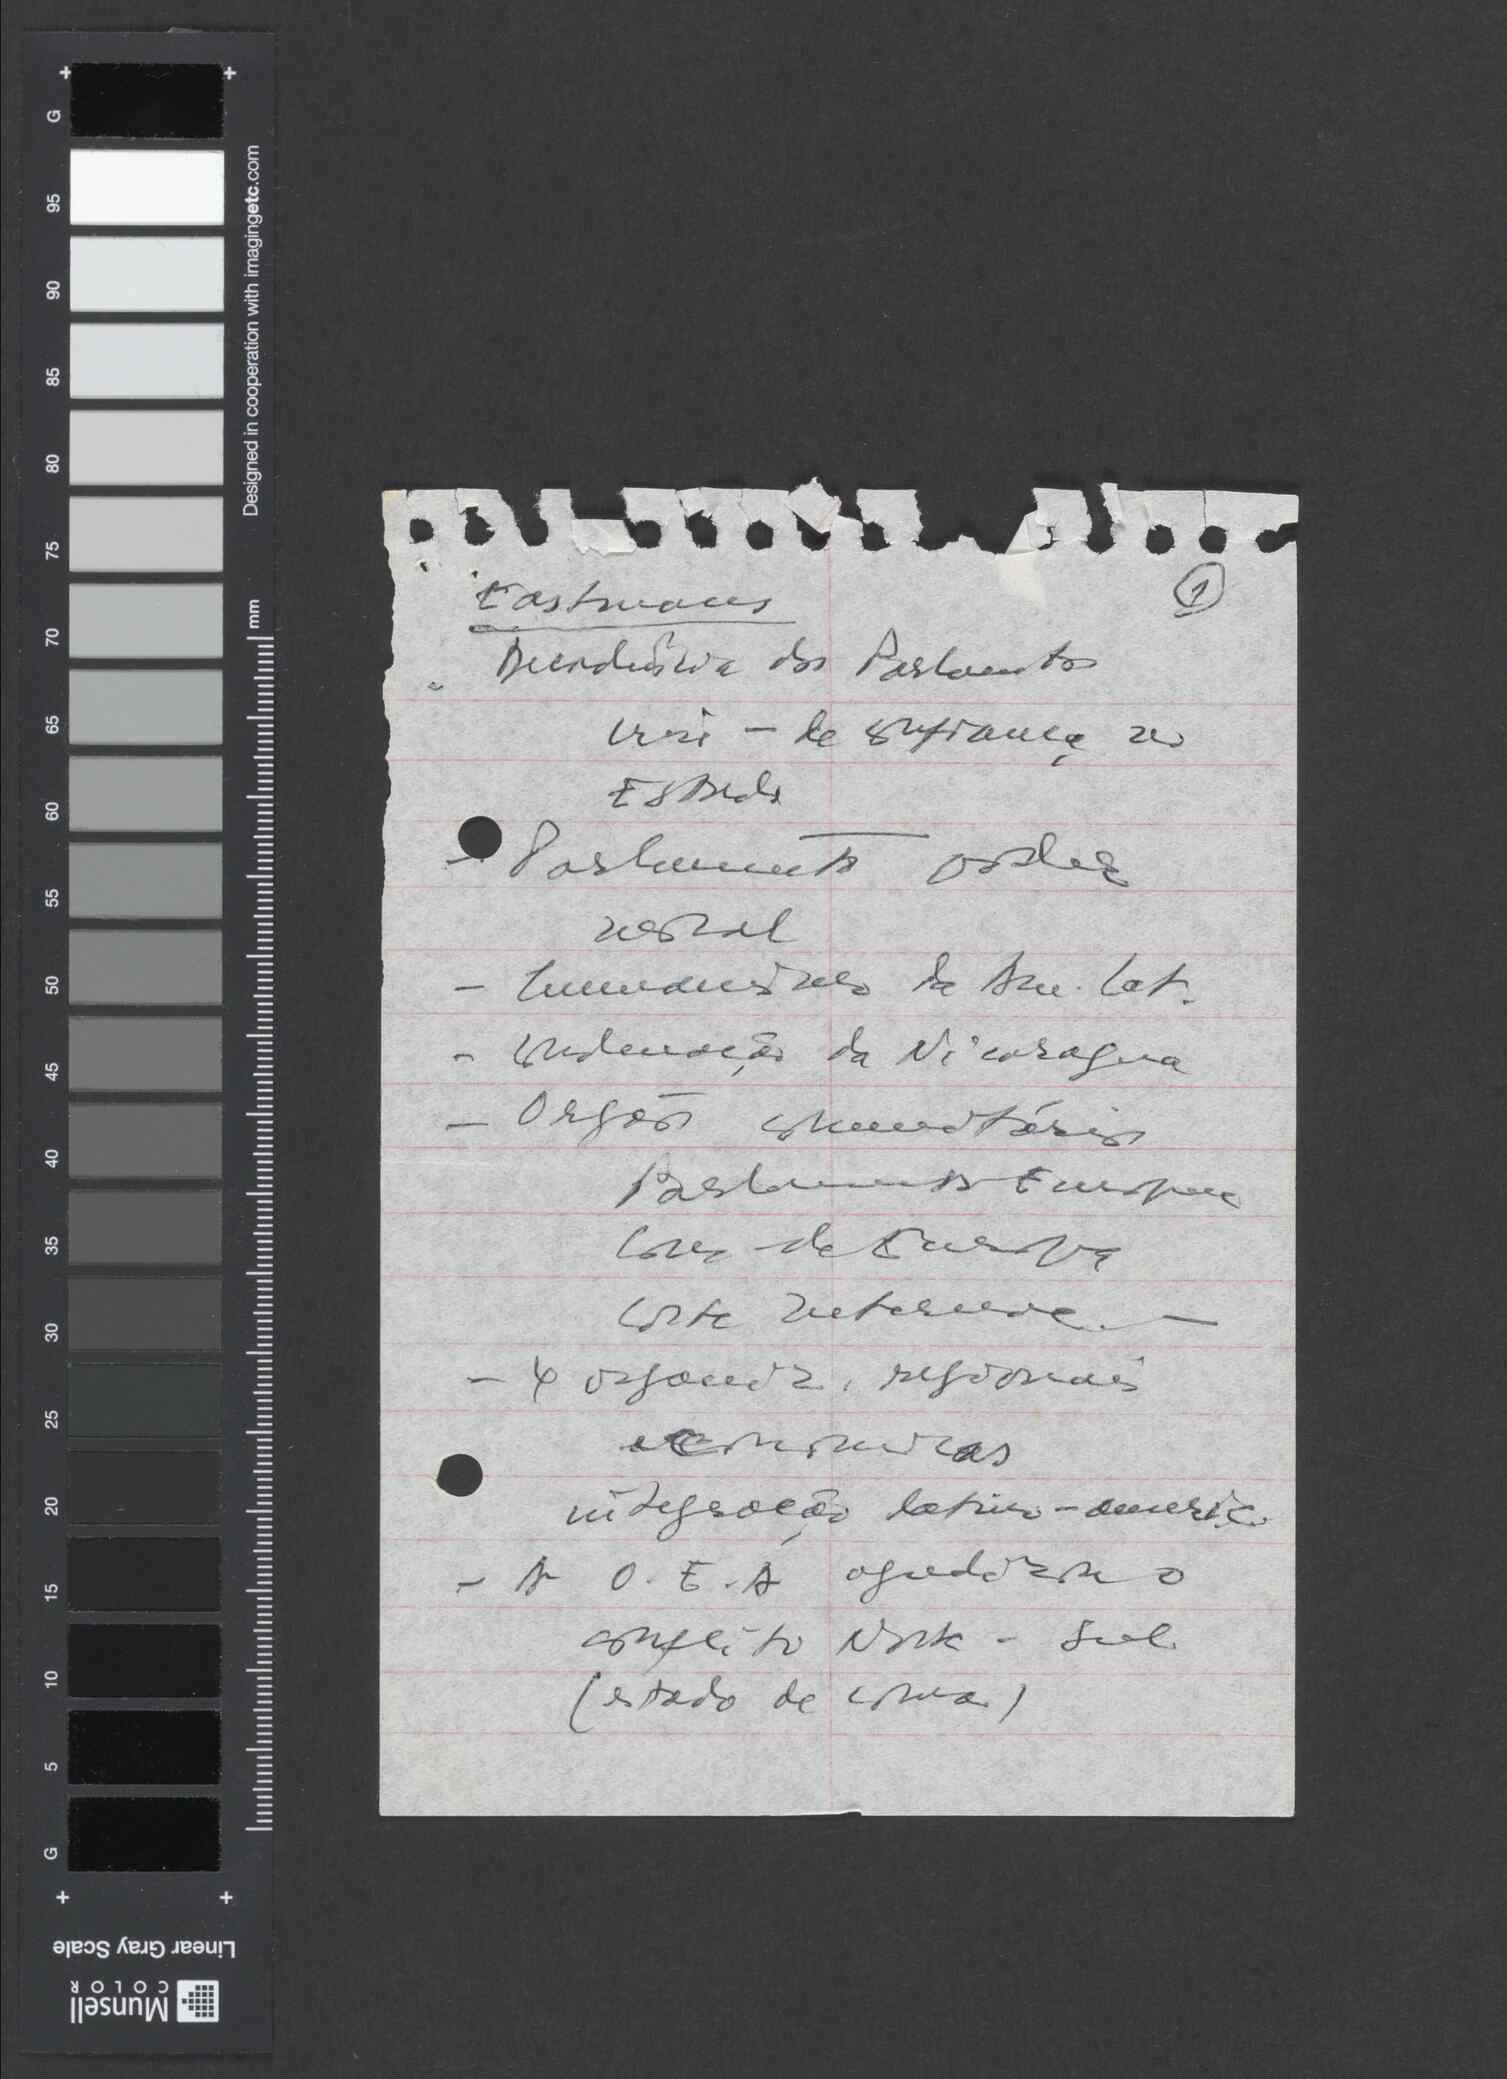 G
95
90
85
80
75
70
65
60
55
50
45
40
35
30
25
20
15
10
5
G
Designed in cooperation with imagingetc.com
mm
Linear Gray Scale
Munsell
COLOR
1
Eastman
dos Parlamentos
crise - de confiança no
Estado
- Parlamento poder
- da Am. Lat.
- Condenação da Nicaragua
- Orgãos comunitários
Parlamento Europeu
de Europa
Corte
- 4 organiz. regionais
economicas
integração latino-americ.
- A O.E.A agudizou o
conflito Norte - Sul
(estado de coma)